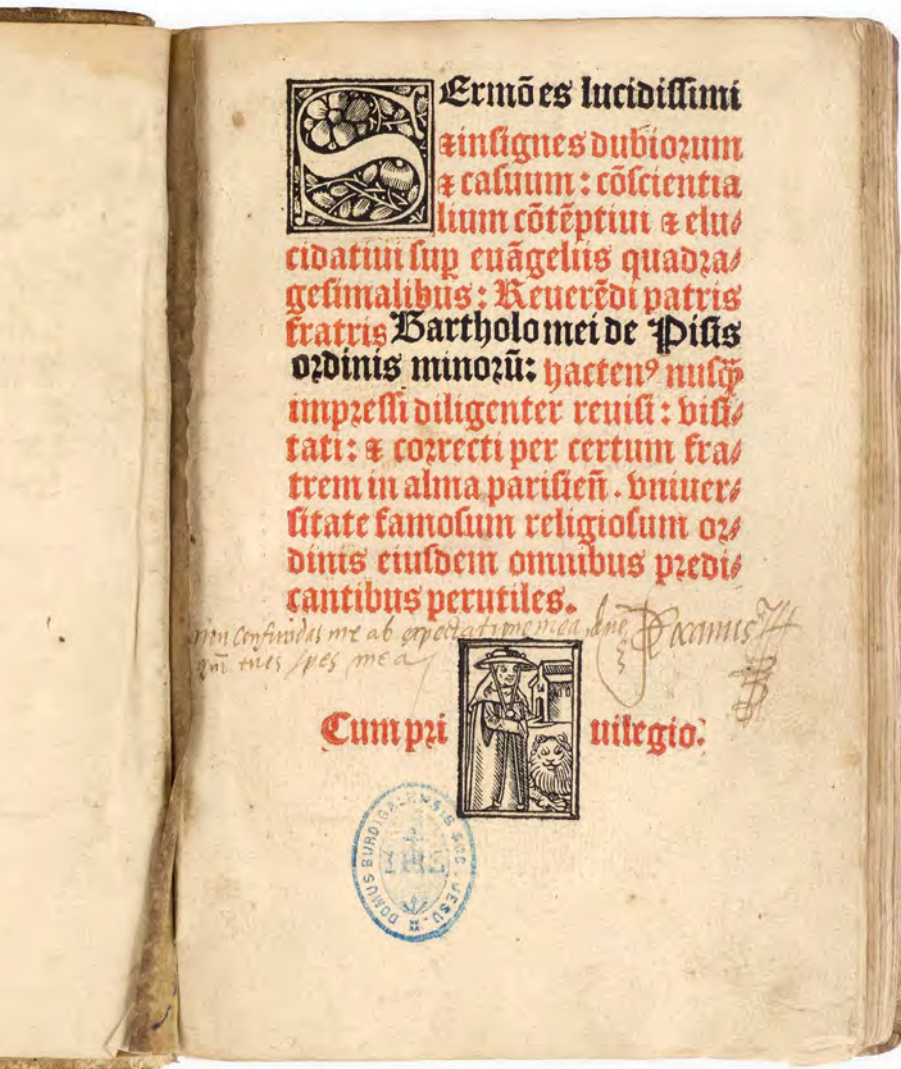 SErmões lucidissimi
⁊ insignes dubiorum
⁊ casuum: cõscientia
lium cõtẽptiui ⁊ elu⸗
cidatiui suꝑ euãgeliis quadra⸗
gesimalibus: Reuerẽdi patris
fratris Bartholomei de Pisis
ordinis minorũ: hactenꝰ nusꝙ̃
impressi diligenter reuisi: visi⸗
tati: ⁊ correcti per certum fra⸗
trem in alma parisieñ. vniuer⸗
sitate famosum religiosum or⸗
dinis eiusdem omnibus predi⸗
cantibus perutiles.
non Confundas me ab expectatione mea, dñe
qm̃ tu es spes mea
Cum pri uilegio.
DOMUS BURDIGALENSIS SOC. JESU
IHS